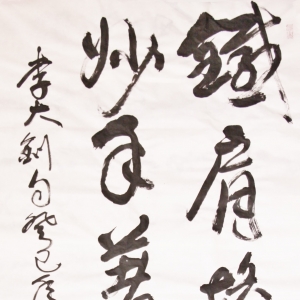 鐵肩擔
妙手著
李大釗句癸巳